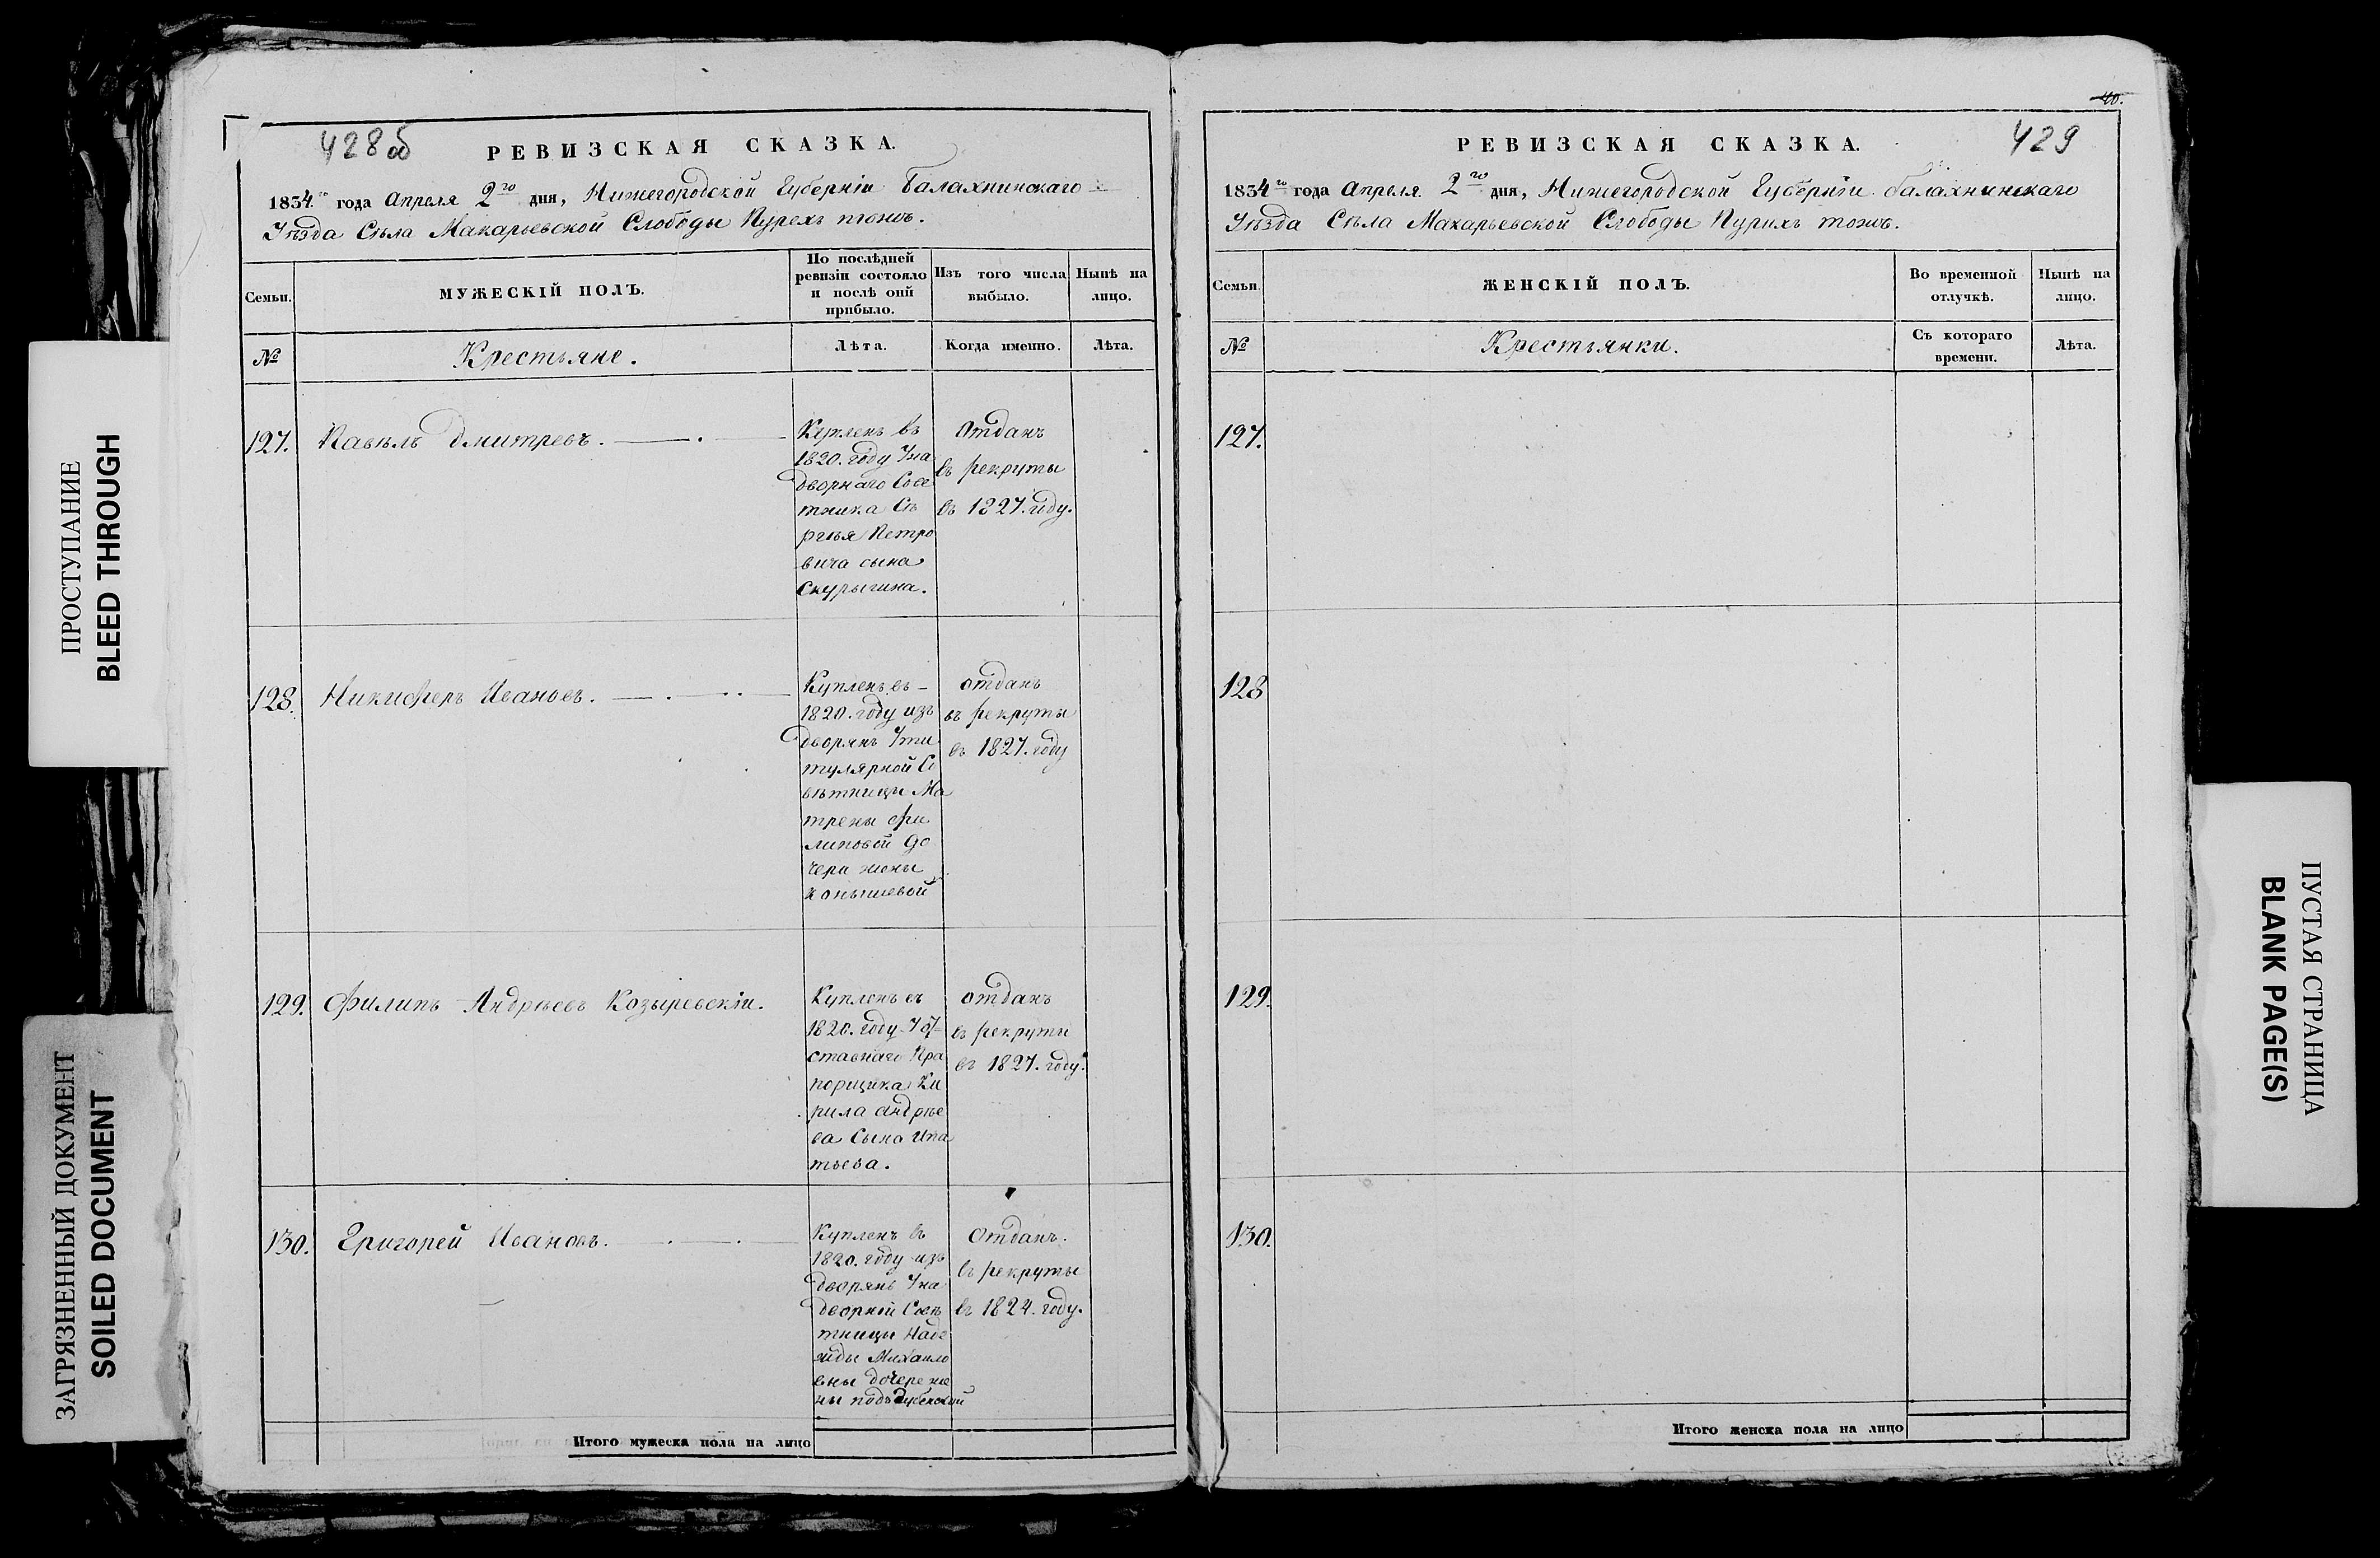 428об
РЕВИЗСКАЯ СКАЗКА.
1834.го года Апреля 2го дня, Нижегородской Губерніи Балахнинскаго
Уѣзда Сѣла Макарьевской Слободы Пурехъ тожъ.
Семьи.
МУЖЕСКІЙ ПОЛЪ.
По послѣдней
ревизіи состояло
и послѣ оной
прибыло.
Изъ того числа
выбыло.
Нынѣ на
лицо.
№
Крестьяне.
Лѣта.
Когда именно.
Лѣта.
127.
Павѣлъ Дмитревъ.
Куплень въ
1820. году Уна
дворнаго Сове
тника Се
ргѣя Петро
вича сына
Скурыгина.
Отданъ
въ рекруты
въ 1827. году.
128.
Никиферъ Ивановъ.
Купленъ въ
1820. году изъ
дворянъ Ути
тулярной Со
вѣтницы Ма
трены Фи
липовой до
чери жены
Конышевой
отданъ
въ рекруты
въ 1827. году
129.
Филипъ Андрѣевъ Козыревскіи.
Купленъ въ
1820. году Уот
ставнаго Пра
порщика Ки
рила Андрѣе
ва Сына Ипа
тьева.
отданъ
въ рекруты
въ 1827. году.
130.
Григорей Ивановъ.
Купленъ въ
1820. году изъ
дворянъ Уна
дворной Совѣ
тницы Наде
жды Михаило
вны дочере же
ны поддубенской
Отданъ.
въ рекруты
въ 1824. году.
Итого мужеска пола на лицо
40.
429
РЕВИЗСКАЯ СКАЗКА.
1834го года Апреля. 2го дня, Нижегородской Губерніи Балахнинскаго
Уѣзда Сѣла Макарьевской Слободы Пурихъ тожъ.
Семьи.
ЖЕНСКІЙ ПОЛЪ.
Во временной
отлучкѣ.
Нынѣ на
лицо.
№
Крестьянки.
Съ котораго
времени.
Лѣта.
127.
128
129.
130.
Итого женска пола на лицо
ПРОСТУПАНИЕ
BLEED THROUGH
ЗАГРЯЗНЕННЫЙ ДОКУМЕНТ
SOILED DOCUMENT
ПУСТАЯ СТРАНИЦА
BLANK PAGE(S)